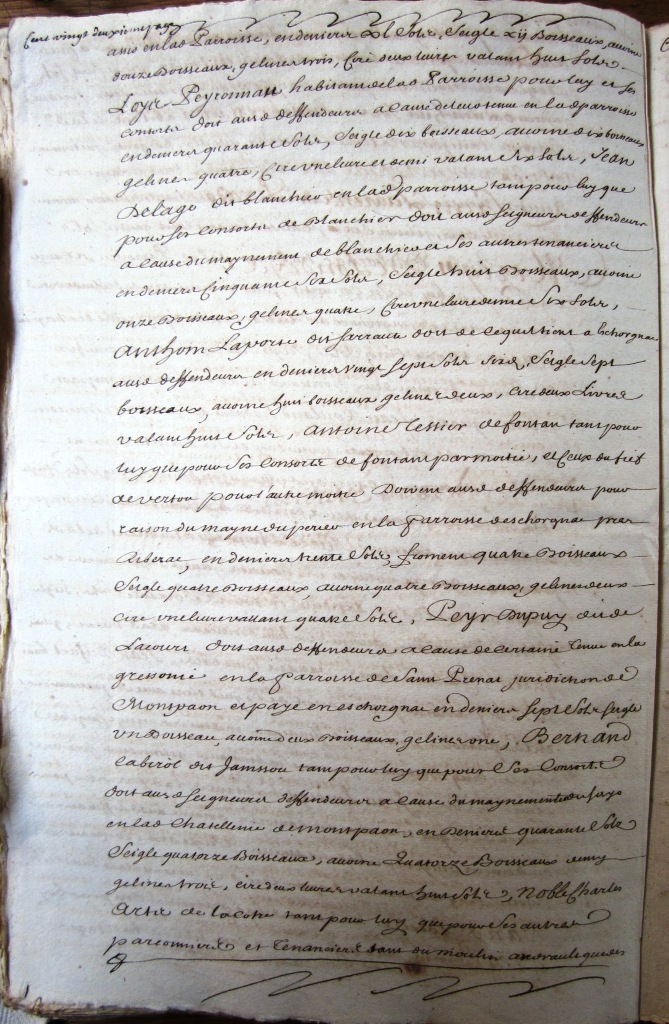 Cent vingt deuxieme page
assis en lad Parroisse, en deniers xl sols, Seigle xij Boisseaux, avoine
douze Boisseaux, gelines trois, Cire deux livres valant huit sols.
Loyse Peyronnau habitans de la d Parroisse pour luy et ses
consorts doit ausd deffendeurs a cause de leur tenue en lad parroisse
en deniers quarante sols, Seigle dix boisseaux, avoine dix boisseaux
gelines quatre, Cire une livre et demi valant six sols, Jean
Delage dit blanchier en lad parroisse tant pour luy que
pour ses Consorts de Blanchier doit ausd seigneurs deffendeurs
a cause du maynement de blanchier et ses autres tenanciers
en deniers Cinquante six sols, Seigle huit Boisseaux, avoine
onze Boisseaux, gelines quatre, Cire une livre demie six sols,
Anthoni Laporte dit sarraute doit de a Eschorgnac
ausd deffendeurs en deniers vingt sept sols six d, Seigle sept
boisseaux, avoine huit boisseaux gelines deux, Cire deux Livres
valant huit sols, Antoine Tessier de fontan tant pour
luy que pour ses Consorts de fontant par moitié, et Ceux du fief
de vertou pour l'autre moitié Doivent ausd deffendeurs pour
raison du mayne du perier en la Parroisse deschorgnac pres
Riberac, en deniers trente sols, froment quatre Boisseaux
Seigle quatre Boisseaux, avoine quatre Boisseaux, gelines deux
Cire une livre vallant quatre sols, Peyr Dupuy dit de
Lacourt doit ausd deffendeurs a cause de Certaine Tenue en la
en la Parroisse de Saint Prenat jurisdiction de
Monspaon et paye en eschorgnac en deniers sept sols seigle
un Boisseau, avoine deux Boisseaux, gelines une, Bernand
dit Jamssou tant pour luy que pour ses Consorts
doit ausd seigneurs deffendeurs a cause du maynement du
en lad Chatellenie de monspaon, en Deniers quarante sols
Seigle quatorze Boisseaux, avoine Quatorze Boisseaux
gelines trois, Cire deux livres valant huit sols, Noble Charles
de la Coste tant pour luy que pour ses autres
parconniers et Tenanciers tant du moulin que des